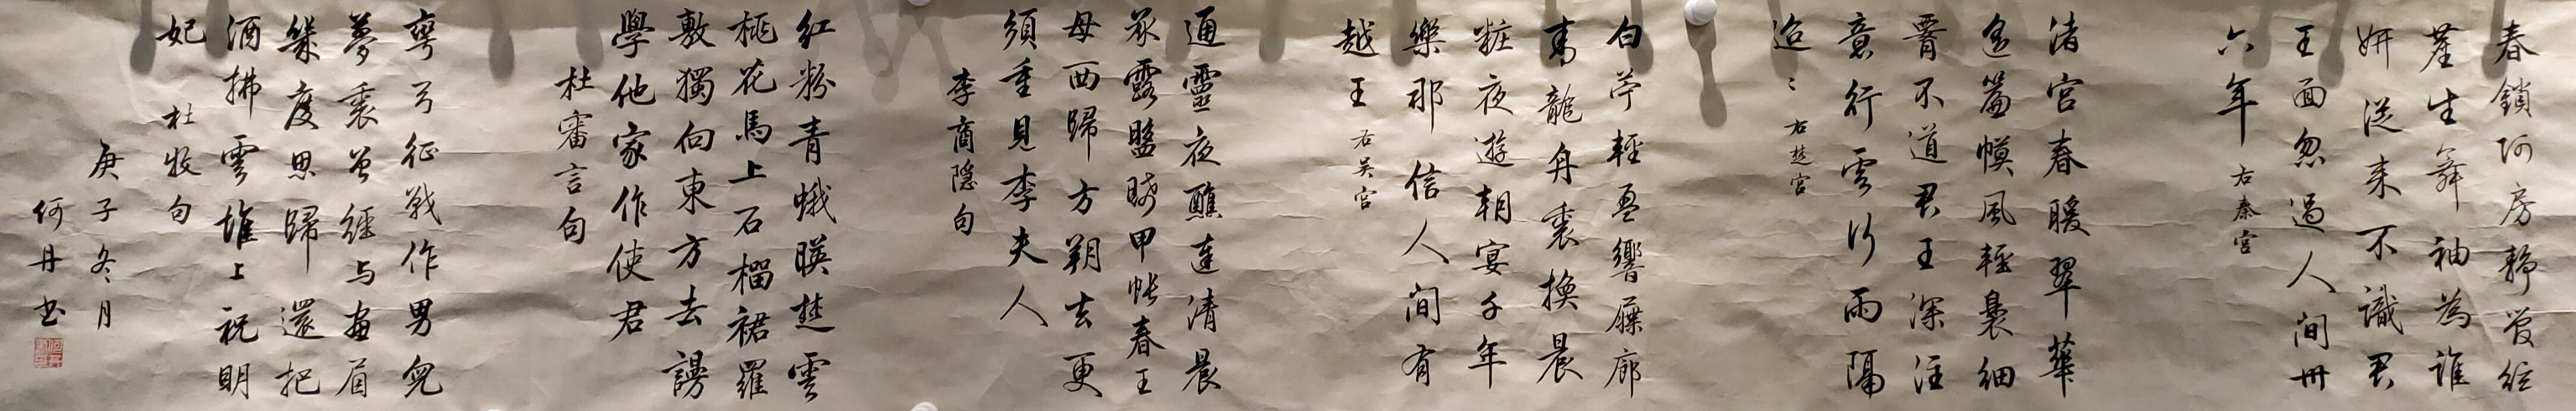 春鎖阿房靜管絃
塵生舞袖為誰
妍從来不識君
王面忽過人间卅
六年 右秦宮
渚宮春暖翠華
遙簾幙風輕裊細
腰不道君王深注
意行雲行雨隔
迢〻 右楚宮
白苧輕盈響屧廊
青龍舟裏換晨
粧夜遊朝宴千年
樂那信人间有
越王 右吴宮
通靈夜醮達清晨
承露盤晞甲帐春王
母西歸方朔去更
須重見李夫人
李商隠句
紅粉青蛾暎楚雲
桃花馬上石榴裙羅
敷獨向東方去謾
學他家作使君
杜審言句
彎弓征戰作男兒
夢裏曾經与畫眉
幾度思歸還把
酒拂雲堆上祝明
妃 杜牧句
庚子冬月
何丹书